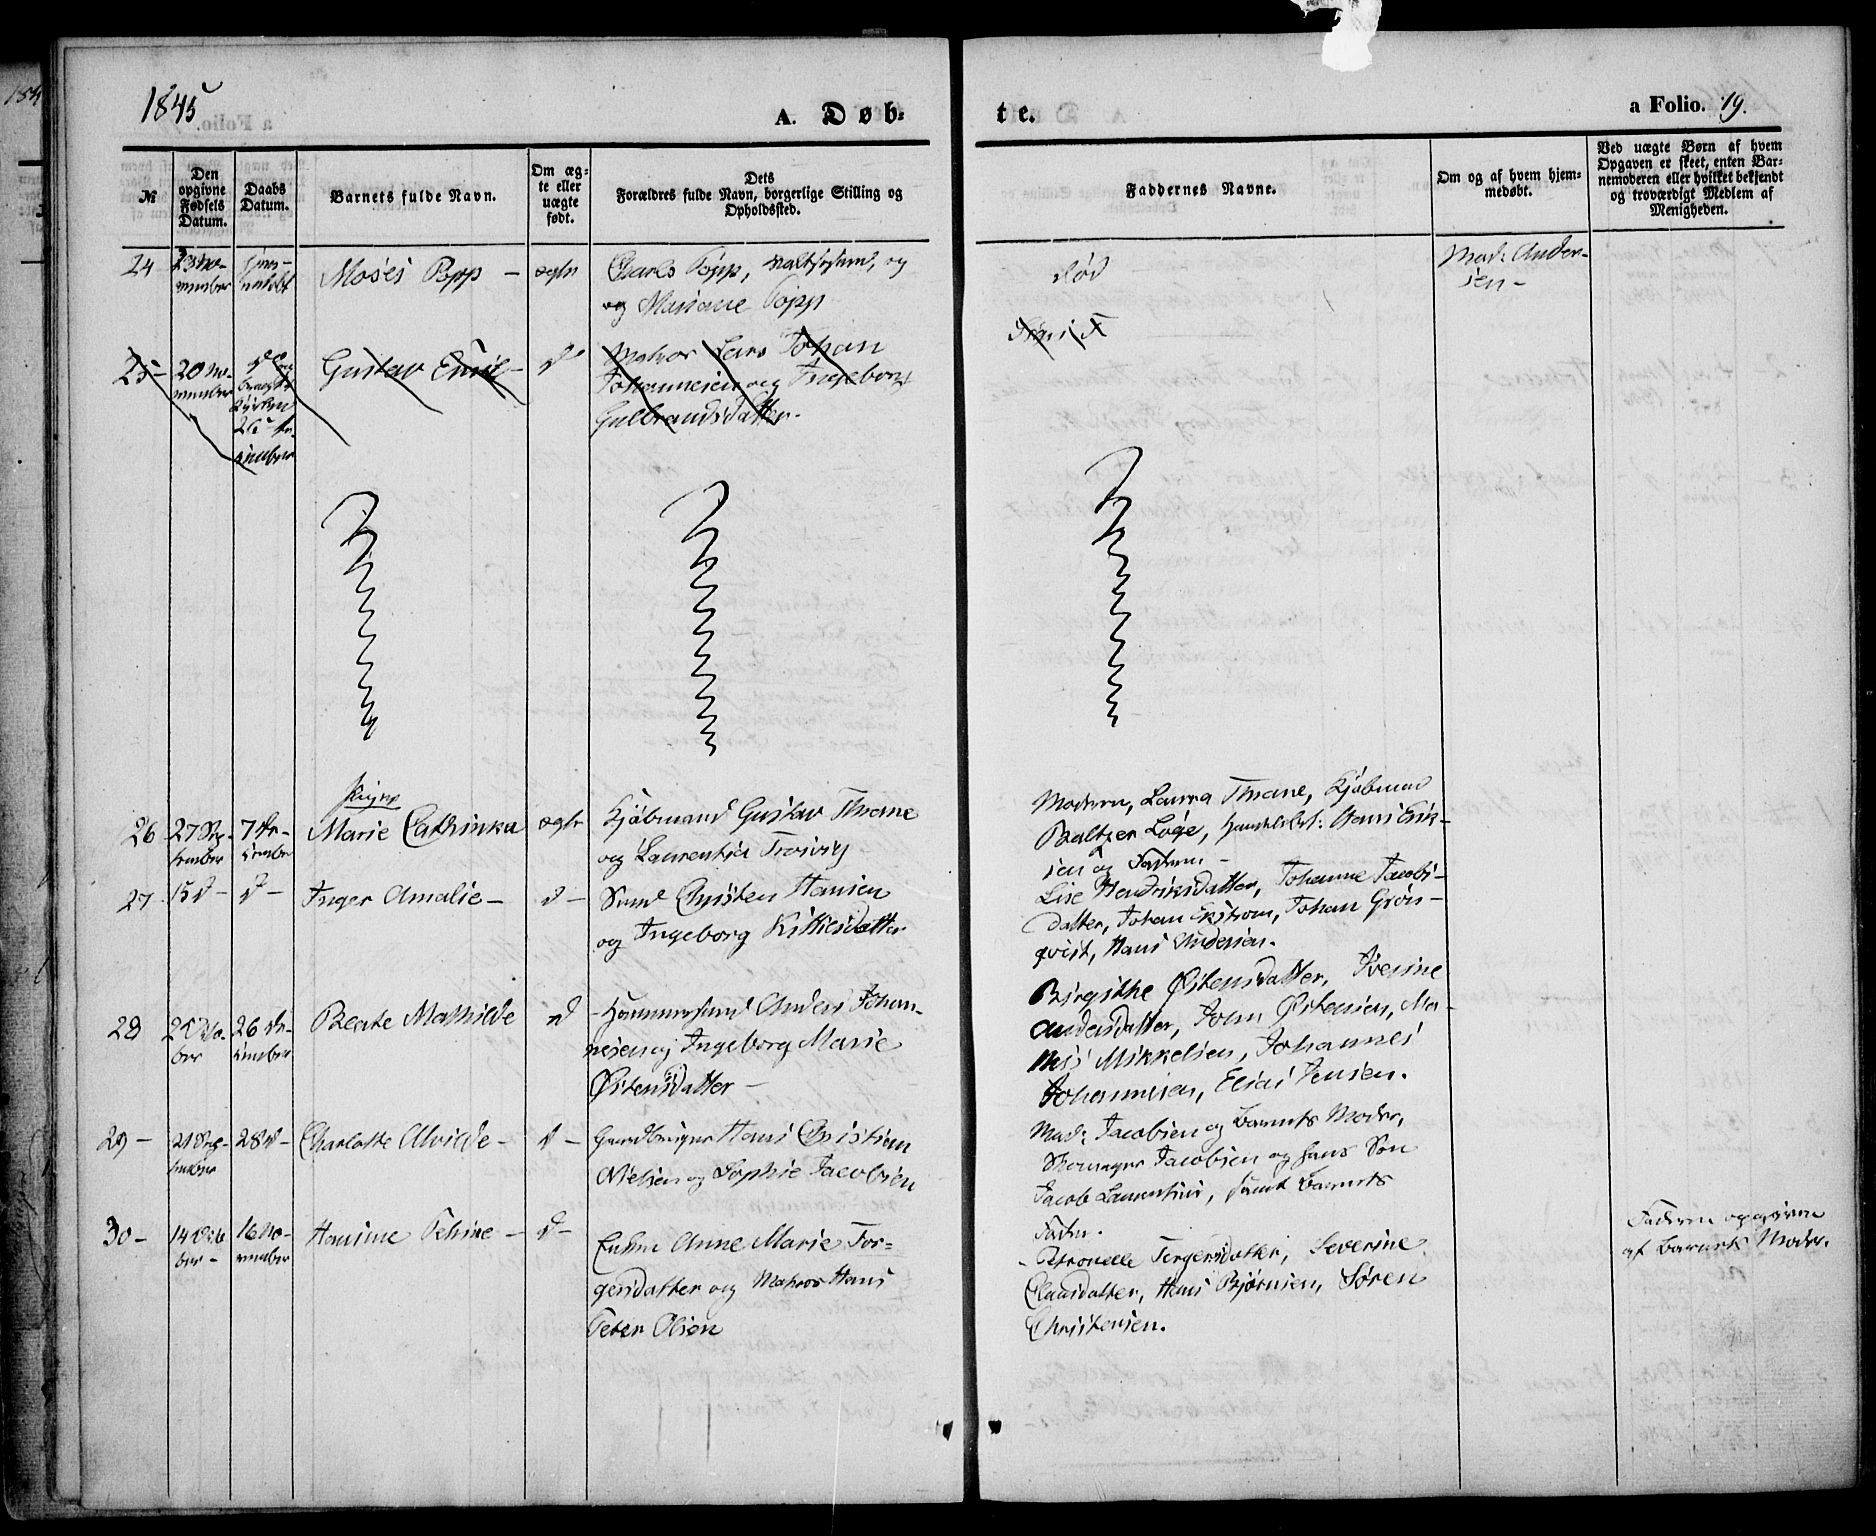 1845
A. Døb-
te.
a Folio. 19.
№
Den
opgivne
Fødsels
Datum.
Daabs
Datum.
Barnets fulde Navn.
Om æg-
te eller
uægte
født.
Dets
Forældres fulde Navn, borgerlige Stilling og
Opholdssted.
Faddernes Navne.
Om og af hvem hjem-
medøbt.
Ved uægte Børn af hvem
Opgaven er skeet, enten Bar-
nemoderen eller hvilket bekjendt
og troværdigt Medlem af
Menigheden.
24
23 No-
vember
Moses Popp -
ægte
Charls Popp, og
og Mariane Popp
død
Mad: Ander-
sen -
25 -
20 No-
vember
Gustav Emil -
d
Matros Lars Johan
Johannesen og Ingeborg
Gulbrandsdatter.
26
27 Sep-
tember
7 De-
cember
Pigen
Marie Cathrinka
ægte
Kjøbmand Gustav Thrane
og Laurentia Trosvig
Modern, Laura Thrane, Kjøbmand
Baltzer Løge, Hans Erik-
sen og Fadern -
27
15 d -
d -
Inger Amalie -
d -
Smed Christen Hansen
og Ingeborg Kittilsdatter
Lise Hendriksdatter, Johanne Jacobs-
datter, Johan Ekstrom, Johan Grøn-
qvist, Hans Andersen.
28
26 De-
cember
Beate Mathilde
d
Anders Johan-
nesen og Ingeborg Marie
Østensdatter -
Birgithe Østensdatter, Iverine
Andersdatter, John Østensen, Mo-
Mikkelsen, Johannes
Johannesen, Elias Jensen.
29 -
21 Sep-
tember
28 d -
Charlotte Alvilde -
d -
Hans Christian
Nielsen og Sophie Jacobsen
Mad: Jacobsen og Barnets Moder,
Skomager Jacobsen og hans Søn
Jacob Laurentius, samt Barnets
Fader.
30 -
14 Octo
ber -
16 No-
vember
Hansine Petrine -
d -
Enken Anne Marie Tor-
gersdatter og Matros Hans
Peter Olsen
Petronelle Torgersdatter, Severine
Clausdatter, Hans Bjørnsen, Søren
Christensen.
Fadern opgiven
af Barnets Moder.